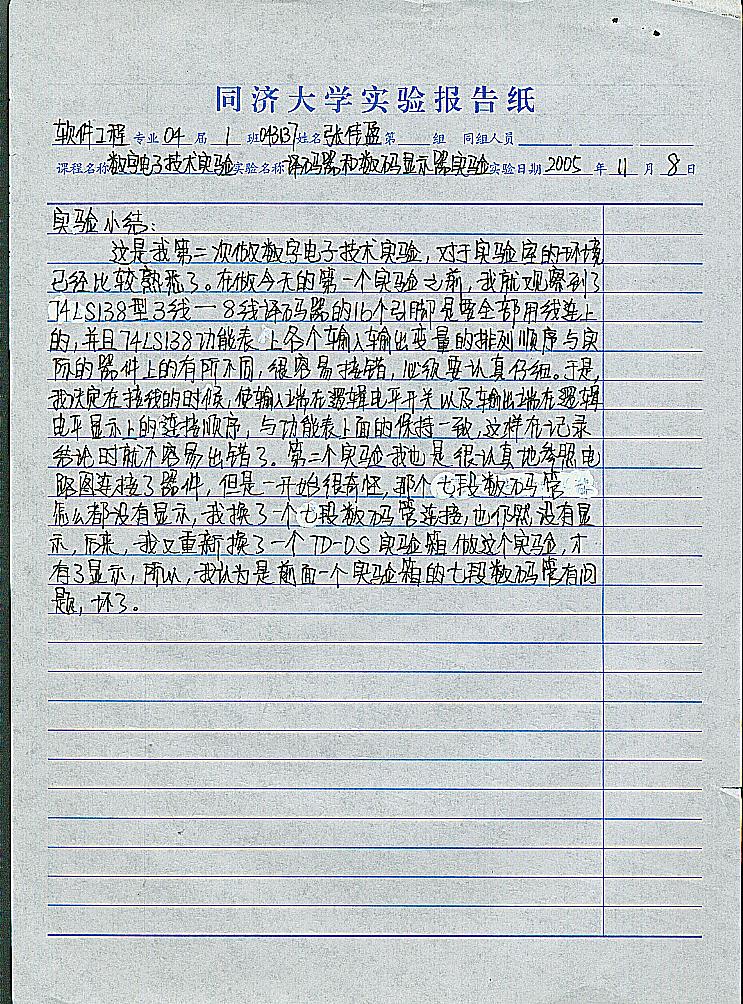 同济大学实验报告纸
软件工程 专业 04 届 1 班 043137 姓名 张佳盈 第 组 同组人员
课程名称 数字电子技术实验 实验名称 译码器和数码显示器实验 实验日期 2005 年 11 月 8 日
实验小结:
这是我第二次做数字电子技术实验,对于实验室的环境
已经比较熟悉了。在做今天的第一个实验之前,我就观察到了
74LS138型3线—8线译码器的16个引脚是要全部用线连上
的,并且74LS138功能表上各个输入输出变量的排列顺序与实
际的器件上的有所不同,很容易接错,必须要认真仔细。于是,
我决定在接线的时候,使输入端在逻辑电平开关以及输出端在逻辑
电平显示上的连接顺序,与功能表上面的保持一致,这样在记录
结论时就不容易出错了。第二个实验我也是很认真地参照电
路图连接了器件,但是一开始很奇怪,那个七段数码管
怎么都没有显示,我换了一个七段数码管连接,也仍然没有显
示,后来,我又重新换了一个TD-DS实验箱做这个实验,才
有了显示,所以,我认为是前面一个实验箱的七段数码管有问
题,坏了。